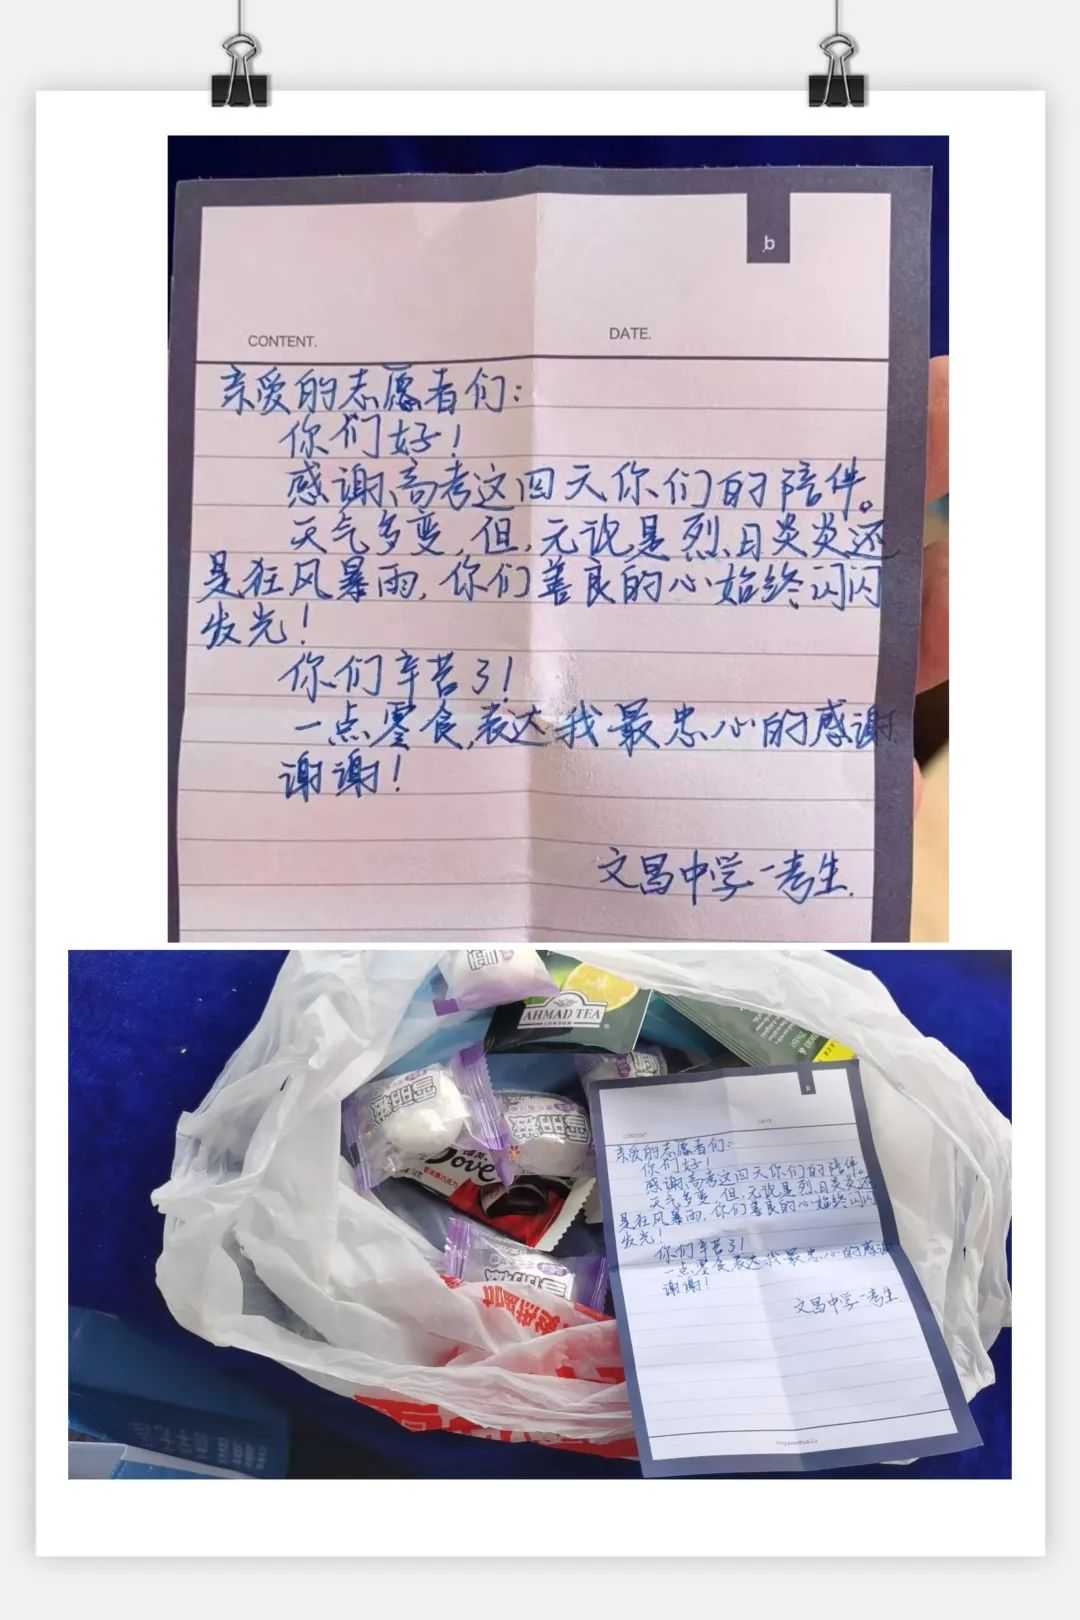 b
CONTENT.
DATE.
亲爱的志愿者们：
你们好！
感谢高考这四天你们的陪伴。
天气多变，但，无论是烈日炎炎还
是狂风暴雨，你们善良的心始终闪闪
发光！
你们辛苦了！
一点零食，表达我最忠心的感谢
谢谢！
文昌中学一考生.
AHMAD TEA
LONDON
Dove
亲爱的志愿者们：
你们好！
感谢高考这四天你们的陪伴。
天气多变，但，无论是烈日炎炎还
是狂风暴雨，你们善良的心始终闪闪
发光！
你们辛苦了！
一点零食，表达我最忠心的感谢
谢谢！
文昌中学一考生